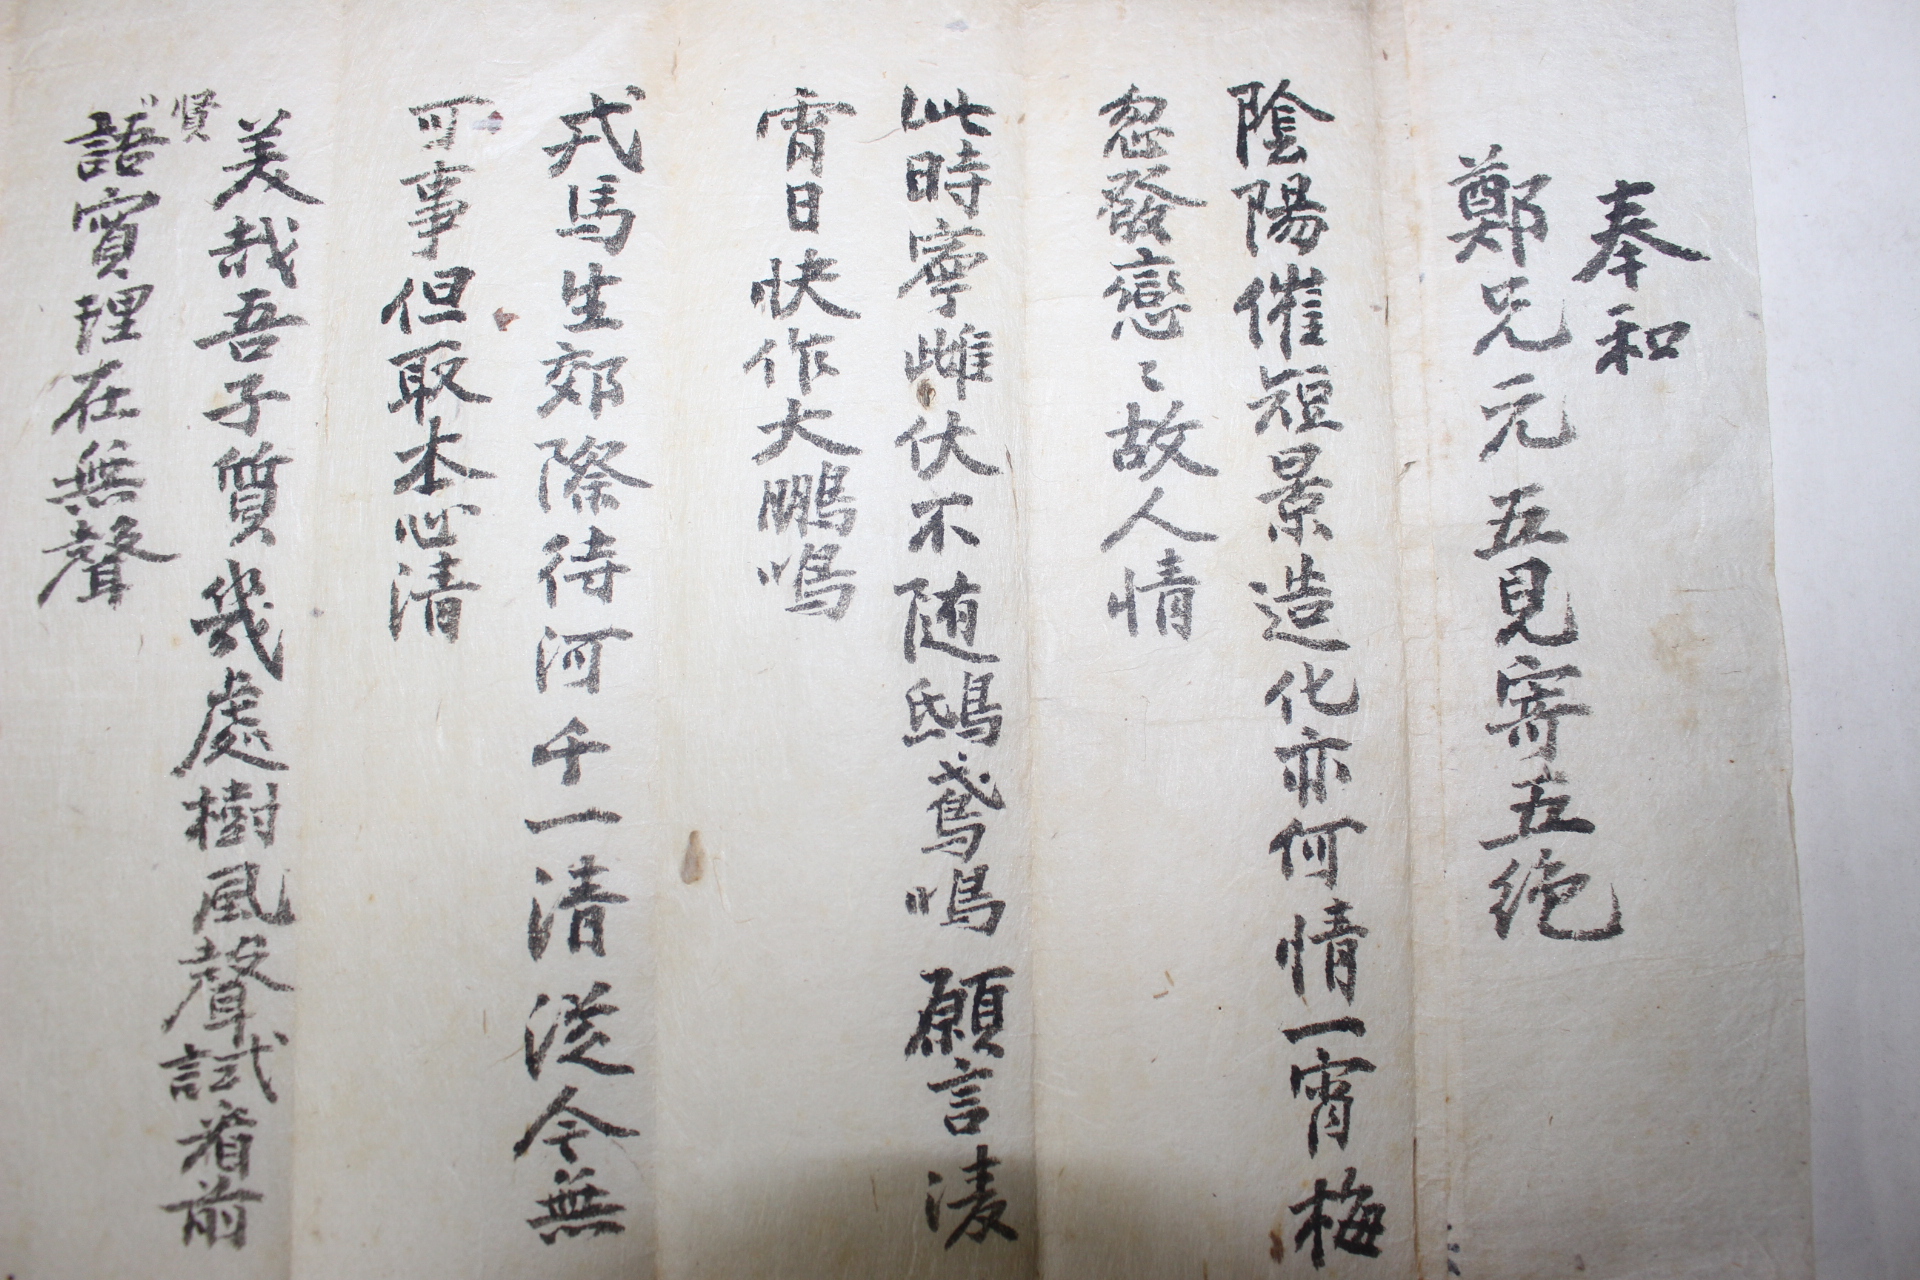 奉和
鄭兄元五見寄五絶
陰陽催短景造化亦何情一宵梅
忽發戀〻故人情
此時寧雌伏不随鴟鳶鳴願言凌
霄日快作大鵬鳴
戎馬生郊際待河千一清從今無
可事但取本心清
美哉吾子質幾處樹風聲試看前
賢
語實理在無聲